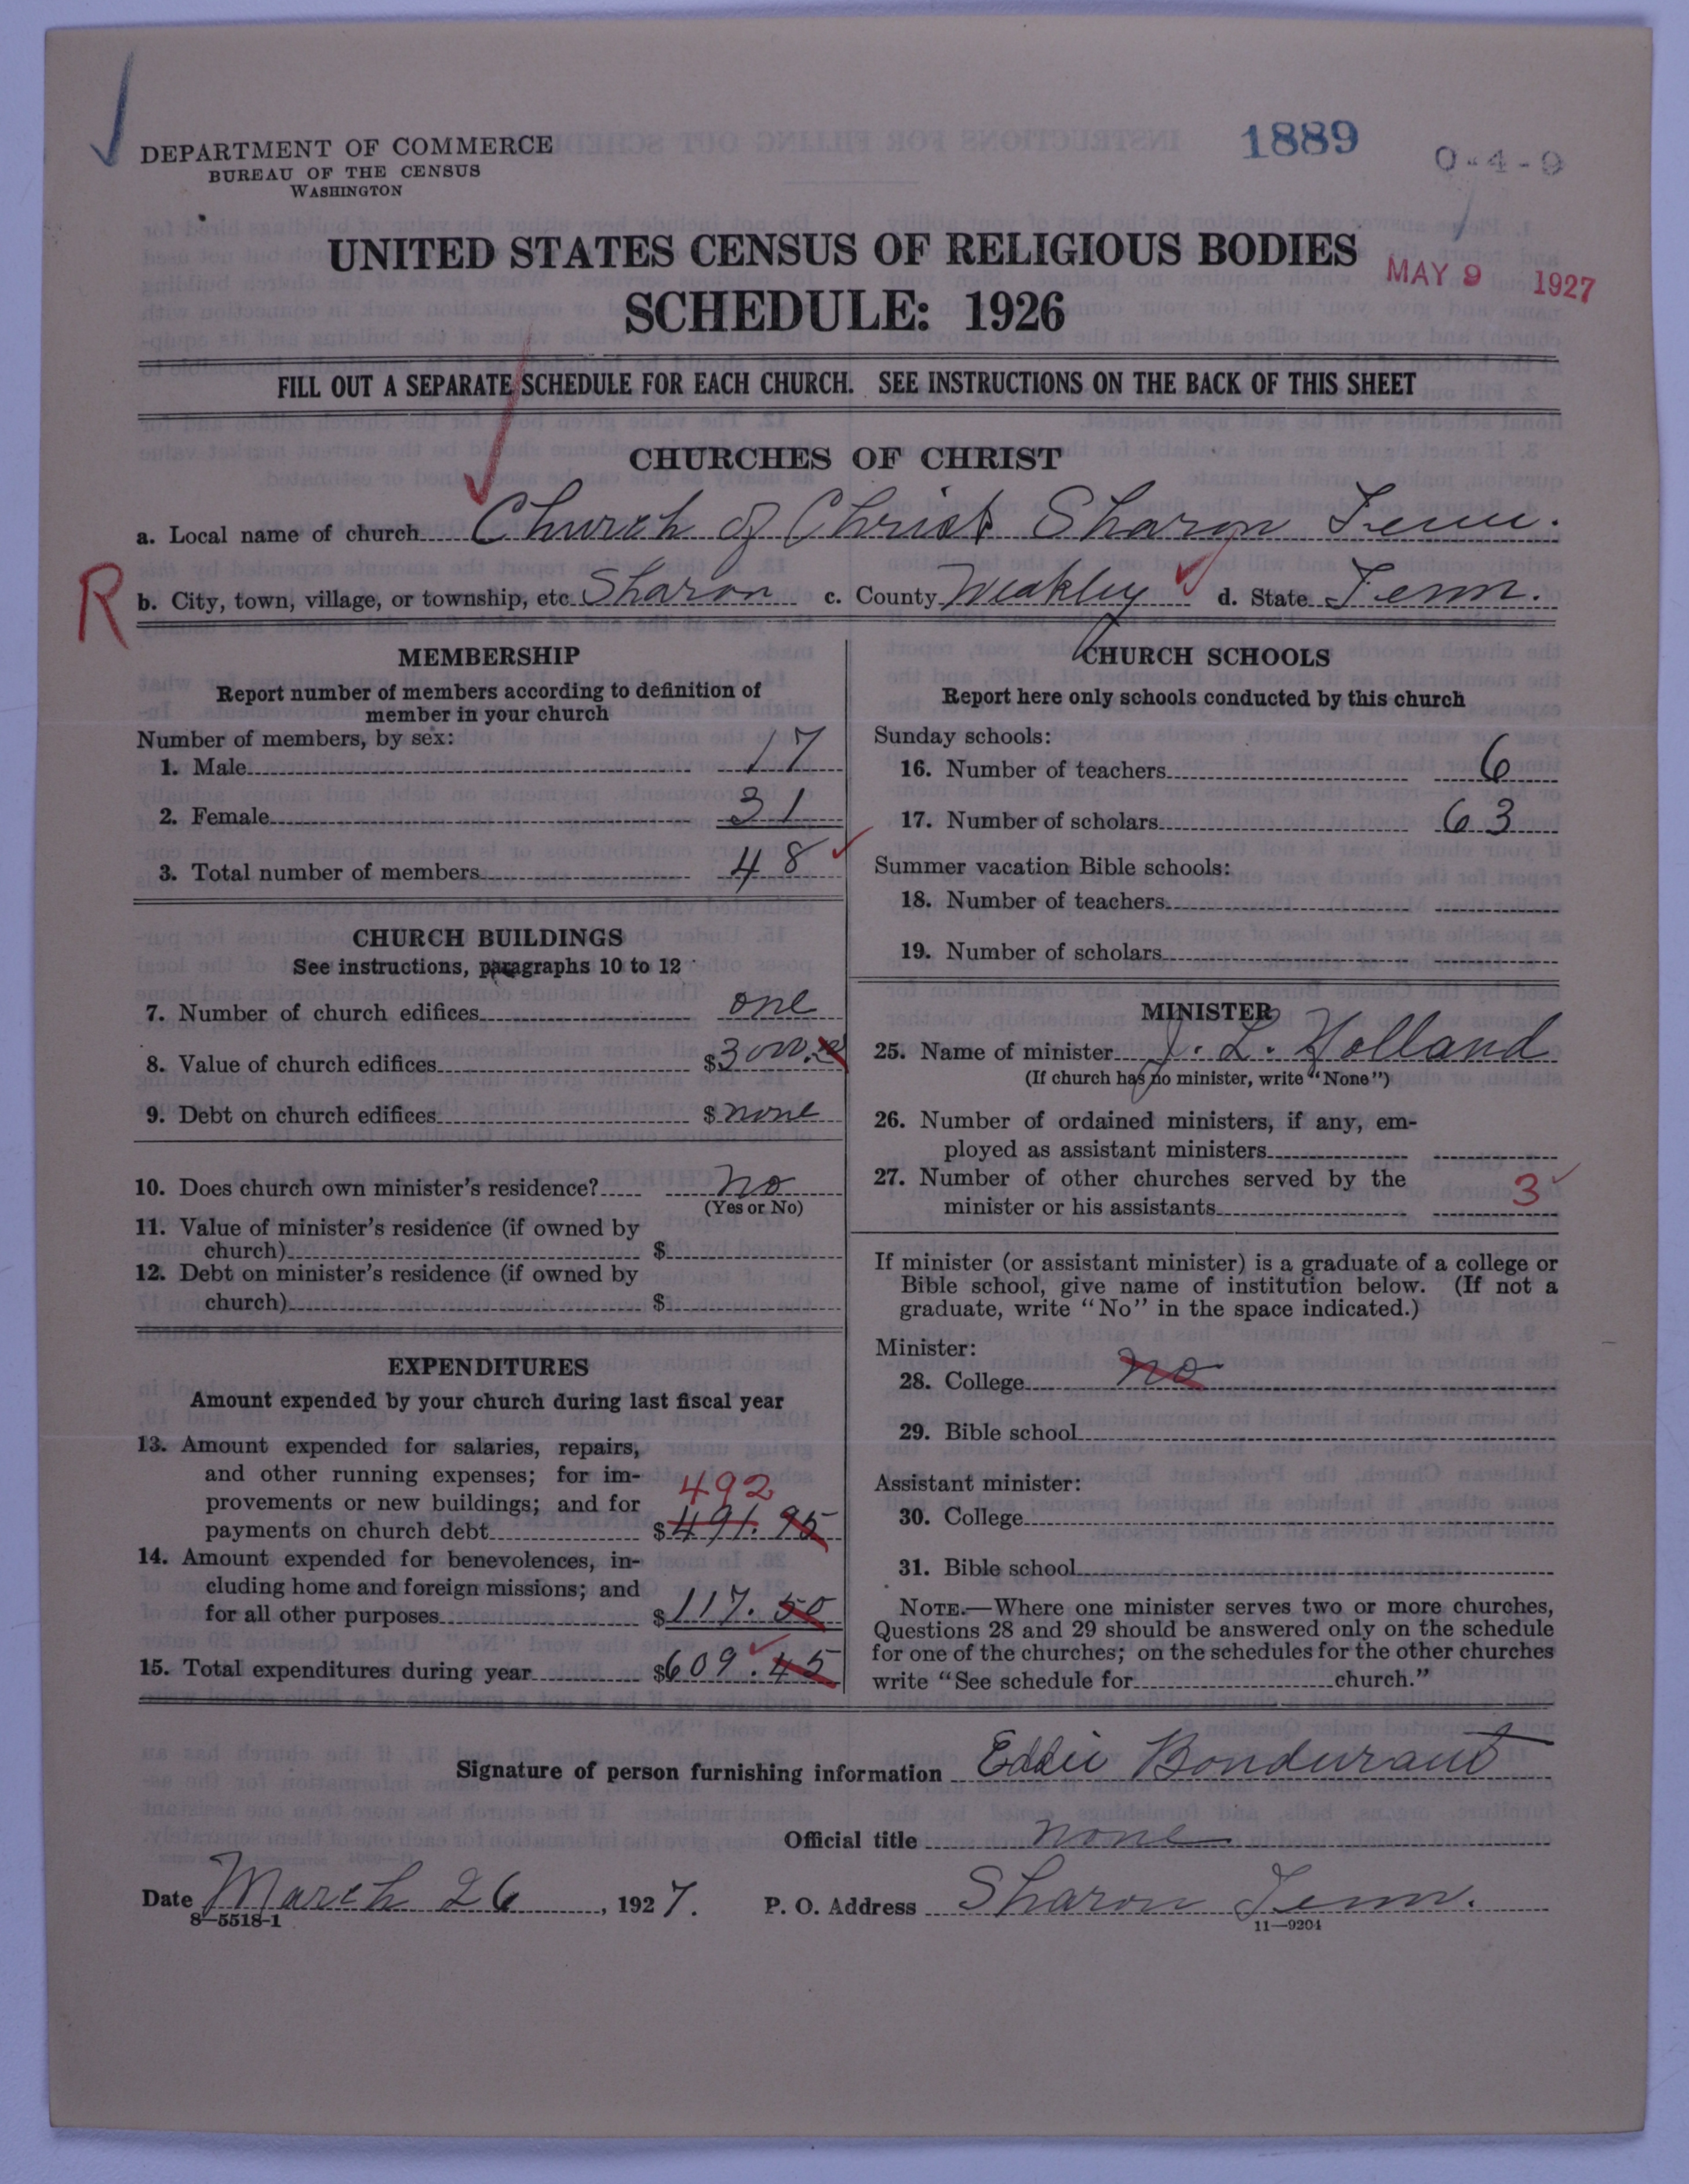 1889
0-4-9
DEPARTMENT OF COMMERCE
BUREAU OF THE CENSUS
WASHINGTON
UNITED STATES CENSUS OF RELIGIOUS BODIES
MAY 9 1927
SCHEDULE: 1926
FILL OUT A SEPARATE SCHEDULE FOR EACH CHURCH. SEE INSTRUCTIONS ON THE BACK OF THIS SHEET
CHURCHES OF CHRIST
a. Local name of church Church of Christ Sharon Tenn.
R
b. City, town, village, or township, etc. Sharon c. County Weakley d. State Tenn.
MEMBERSHIP
Report number of members according to definition of
member in your church
Number of members, by sex:
1. Male 17
2. Female 31
3. Total number of members 48
CHURCH BUILDINGS
See instructions, paragraphs 10 to 12
7. Number of church edifices one
8. Value of church edifices $3000.00
9. Debt on church edifices $ none
10. Does church own minister's residence? No
(Yes or No)
11. Value of minister's residence (if owned by
church) $
12. Debt on minister's residence (if owned by
church) $
EXPENDITURES
Amount expended by your church during last fiscal year
13. Amount expended for salaries, repairs,
and other running expenses; for im-
provements or new buildings; and for
492
payments on church debt $491.95
14. Amount expended for benevolences, in-
cluding home and foreign missions; and
for all other purposes $117.50
15. Total expenditures during year $609.45
CHURCH SCHOOLS
Report here only schools conducted by this church
Sunday schools:
16. Number of teachers 6
17. Number of scholars 63
Summer vacation Bible schools:
18. Number of teachers
19. Number of scholars
MINISTER
25. Name of minister J. L. Holland
(If church has no minister, write "None")
26. Number of ordained ministers, if any, em-
ployed as assistant ministers
27. Number of other churches served by the
minister or his assistants 3
If minister (or assistant minister) is a graduate of a college or
Bible school, give name of institution below. (If not a
graduate, write "No" in the space indicated.)
Minister:
28. College no
29. Bible school
Assistant minister:
30. College
31. Bible school
NOTE.—Where one minister serves two or more churches,
Questions 28 and 29 should be answered only on the schedule
for one of the churches; on the schedules for the other churches
write "See schedule for church."
Signature of person furnishing information Eddie Bondurant
Official title none
Date March 26, 1927. P. O. Address Sharon Tenn.
8-5518-1
11—9204